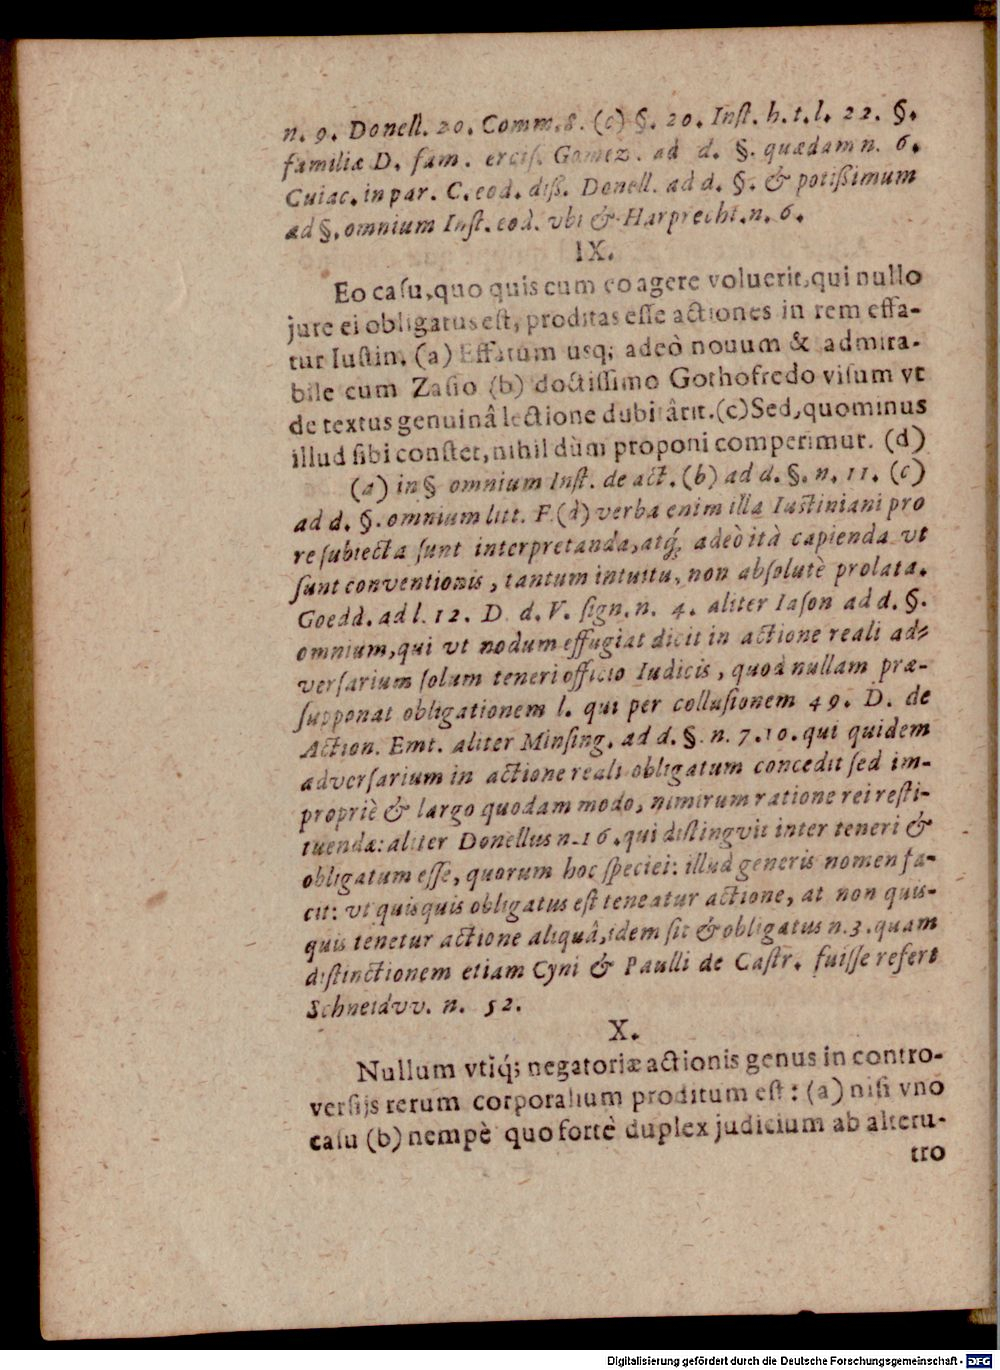 n. 9. Donell. 20. Comm. 8. (c) §. 20. Inſt. h. t. l. 22. §.
familiæ D. fam. erciſ. Gomez. ad d. §. quædam n. 6.
Cuiac. in par. C. eod. diß. Donell. ad d. §. & potißimum
ad §. omnium Inſt. eod. vbi & Harprecht. n. 6.
IX.
Eo caſu, quo quis cum eo agere voluerit, qui nullo
jure ei obligatus eſt, proditas eſſe actiones in rem effa-
tur Iuſtin. (a) Effatum usq; adeò novum & admira-
bile cum Zaſio (b) doctiſſimo Gothofredo viſum vt
de textus genuinâ lectione dubitârit. (c) Sed, quominus
illud ſibi conſtet, nihil dùm proponi comperimur. (d)
(a) in § omnium Inſt. de act. (b) ad d. §. n. 11. (c)
ad d. §. omnium litt. F. (d) verba enim illa Iuſtiniani pro
re ſubiecta ſunt interpretanda, atq́; adeò ità capienda vt
ſunt conventionis, tantum intuitu, non abſolutè prolata.
Goedd. ad l. 12. D. d. V. ſign. n. 4. aliter Iaſon ad d. §.
omnium, qui vt nodum effugiat dicit in actione reali ad-
verſarium ſolum teneri officio Iudicis, quod nullam præ-
ſupponat obligationem l. qui per colluſionem 49. D. de
Action. Emt. aliter Minſing. ad d. §. n. 7. 10. qui quidem
adverſarium in actione reali obligatum concedit ſed im-
propriè & largo quodam modo, nimirum ratione rei reſti-
tuendæ: aliter Donellus n. 16. qui diſtingvit inter teneri &
obligatum eſſe, quorum hoc ſpeciei: illud generis nomen fa-
cit: vt quisquis obligatus eſt teneatur actione, at non quis-
quis tenetur actione aliquâ, idem ſit & obligatus n. 3. quam
diſtinctionem etiam Cyni & Paulli de Caſtr. fuiſſe refert
Schneidvv. n. 52.
X.
Nullum vtiq́; negatoriæ actionis genus in contro-
verſijs rerum corporalium proditum eſt: (a) niſi vno
caſu (b) nempè quo fortè duplex judicium ab alteru-
tro
Digitalisierung gefördert durch die Deutsche Forschungsgemeinschaft - DFG